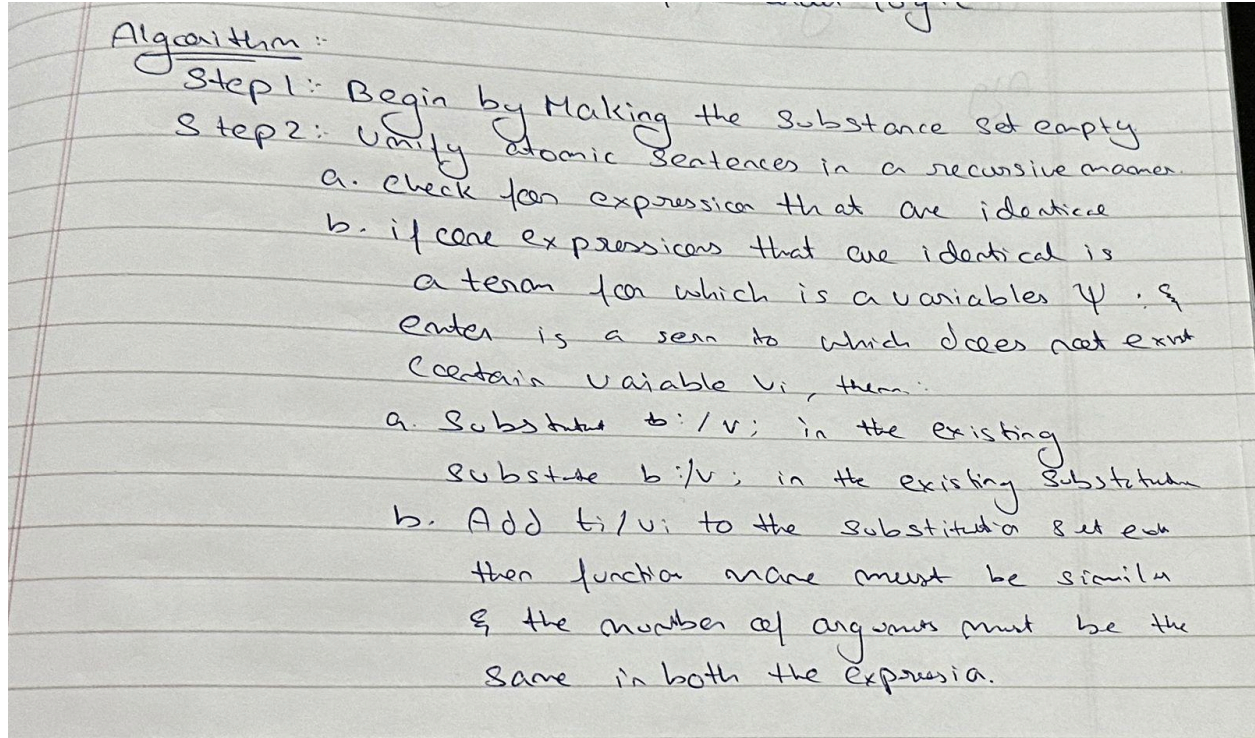 logic
Algorithm :-
Step 1:- Begin by Making the Substance set empty
Step 2:- Unify atomic sentences in a recursive manner.
a. check for expression that are identical
b. if one expressions that are identical is
a term for which is a variables Ψ . &
enter is a to which does not exist
Contain vaiable vi, then:
a. Substitute ti/vi in the existing
substute b:/v; in the existing Substitution
b. Add ti/vi to the substitution set
then function name must be similar
& the number of arguments must be the
same in both the expression.